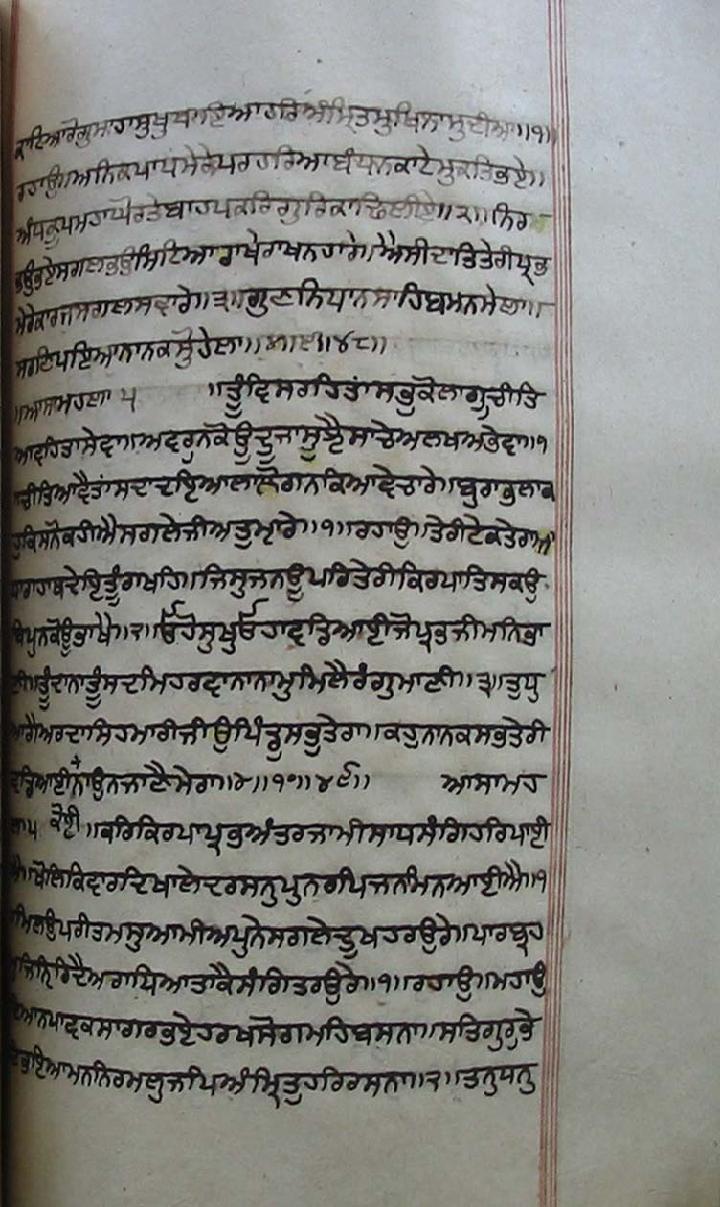 ਕਾਟਿਆਰੋਗੁਮਹਾਸੁਖੁਪਾਇਆਹਰਿਅੰਮ੍ਰਿਤਮੁਖਿਨਾਮੁਦੀਆ॥੧॥
ਰਹਾਉ॥ਅਨਿਕਪਾਪਮੇਰੇਪਰਹਰਿਆਬੰਧਨਕਾਟੇਮੁਕਤਿਭਏ॥
ਅੰਧਕੂਪਮਹਾਘੋਰਤੇਬਾਹਪਕਰਿਗੁਰਿਕਾਢਿਲੀਏ॥੨॥ਨਿਰ
ਭਉਭਏਸਗਲਭਉਮਿਟਿਆਰਾਖੇਰਾਖਨਹਾਰੇ॥ਐਸੀਦਾਤਿਤੇਰੀਪ੍ਰਭ
ਮੇਰੇਕਾਰਜਸਗਲਸਵਾਰੇ॥੩॥ਗੁਣਨਿਧਾਨਸਾਹਿਬਮਨਮੇਲਾ॥
ਸਰਣਿਪਇਆਨਾਨਕਸੋੁਹੇਲਾ॥੪॥੯॥੪੮॥
॥ਆਸਾਮਹਲਾ ੫ ॥ਤੂੰਵਿਸਰਹਿਤਾਂਸਭੁਕੋਲਾਗੂਚੀਤਿ
ਆਵਹਿਤਾਸੇਵਾ॥ਅਵਰੁਨਕੋਊਦੂਜਾਸੂਝੈਸਾਚੇਅਲਖਅਭੇਵਾ॥੧
ਚੀਤਿਆਵੈਤਾਂਸਦਾਦਇਆਲਾਲੋਗਨਕਿਆਵੇਚਾਰੇ॥ਬੁਰਾਭਲਾਕ
ਹੁਕਿਸਨੋਕਹੀਐਸਗਲੇਜੀਅਤੁਮ੍ਹਾਰੇ॥੧॥ਰਹਾਉ॥ਤੇਰੀਟੇਕਤੇਰਾਆ
ਧਾਰਾਹਾਥਦੇਇਤੂੰਰਾਖਹਿ॥ਜਿਸੁਜਨਊਪਰਿਤੇਰੀਕਿਰਪਾਤਿਸਕਉ
ਬਿਪੁਨਕੋਊਭਾਖੈ॥੨॥ਓਹੋਸੁਖੁਓਹਾਵਡਿਆਈਜੋਪ੍ਰਭਜੀਮਨਿਭਾ
ਣੀ॥ਤੂੰਦਾਨਾਤੂੰਸਦਮਿਹਰਵਾਨਾਨਾਮੁਮਿਲੈਰੰਗੁਮਾਣੀ॥੩॥ਤੁਧੁ
ਆਗੈਅਰਦਾਸਿਹਮਾਰੀਜੀਉਪਿੰਡੁਸਭੁਤੇਰਾ॥ਕਹੁਨਾਨਕਸਭਤੇਰੀ
ਵਡਿਆਈਨਾਂਉਨਜਾਣੈਮੇਰਾ॥੪॥੧੦॥੪੯॥ ਆਸਾਮਹ
ਲਾ੫ ਕੋਈ ॥ਕਰਿਕਿਰਪਾਪ੍ਰਭਅੰਤਰਜਾਮੀਸਾਧਸੰਗਿਹਰਿਪਾਈ
ਐ॥ਖੋਲਿਕਿਵਾਰਦਿਖਾਲੇਦਰਸਨੁਪੁਨਰਪਿਜਨਮਿਨਆਈਐ॥੧
ਮਿਲਉਪਰੀਤਮਸੁਆਮੀਅਪੁਨੇਸਗਲੇਦੂਖਹਰਉਰੇ॥ਪਾਰਬ੍ਰਹ
ਮੁਜਿਨ੍ਹਿਰਿਦੈਅਰਾਧਿਆਤਾਕੈਸੰਗਿਤਰਉਰੇ॥੧॥ਰਹਾਉ॥ਮਹਾਉ
ਦਿਆਨਪਾਵਕਸਾਗਰਭਏਹਰਖਸੋਗਮਹਿਬਸਨਾ॥ਸਤਿਗੁਰੁਭੇ
ਟਿਭਇਆਮਨਨਿਰਮਲੁਜਪਿਅੰਮ੍ਰਿਤੁਹਰਿਰਸਨਾ॥੨॥ਤਨੁਧਨੁ